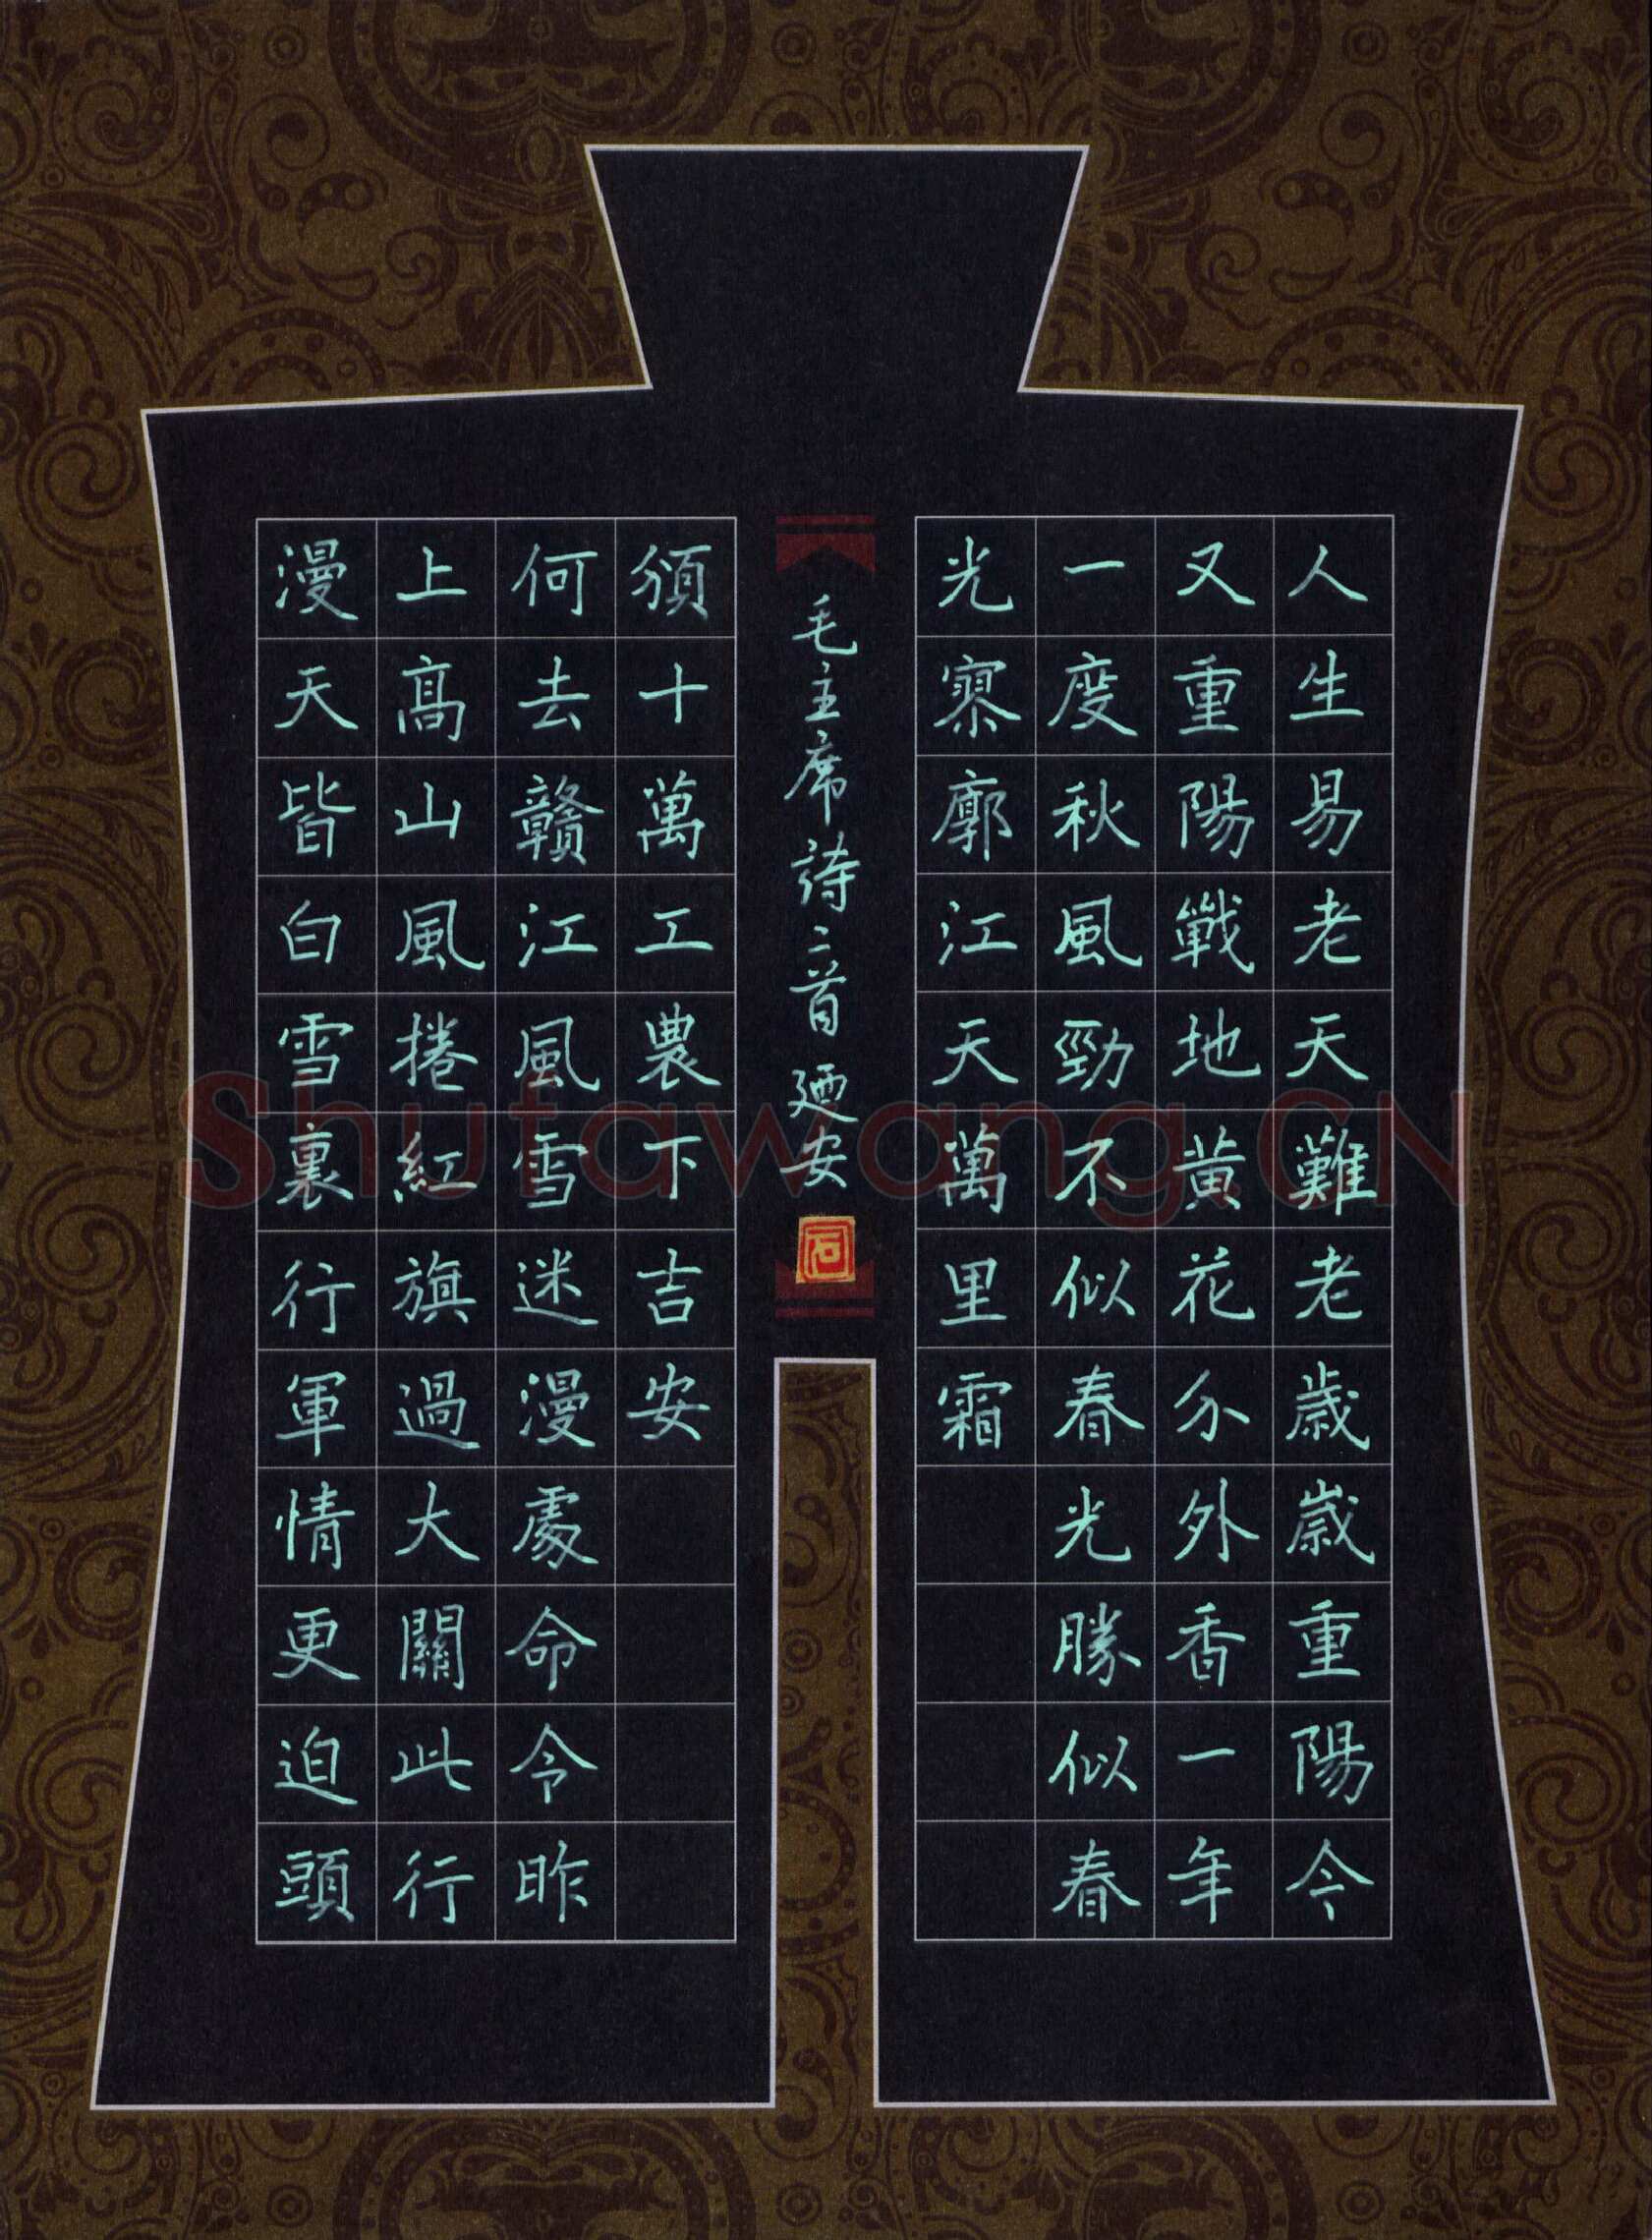 人生易老天難老歲歲重陽今
又重陽戰地黃花分外香一年
一度秋風勁不似春光勝似春
光寥廓江天萬里霜
漫天皆白雪裏行軍情更迫頭
上高山風捲紅旗過大關此行
何去贛江風雪迷漫處命令昨
頒十萬工農下吉安
毛主席詩二首 廼安
石
Shufawang.CN